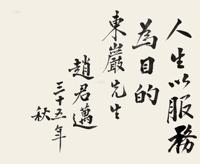 人生以服務
為目的
東巖先生
趙君邁
三十五年
秋